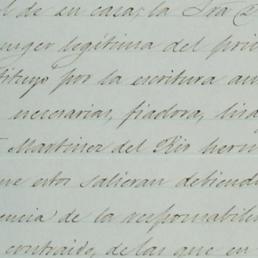 l de su casa; la Sra D
muger legítima del prin
tituyo por la escritura an
necesarias, fiadora, lisa
Martinez del Rio herm
que estos salieran debiendo
encia de la responsabili
contraido, de las que en